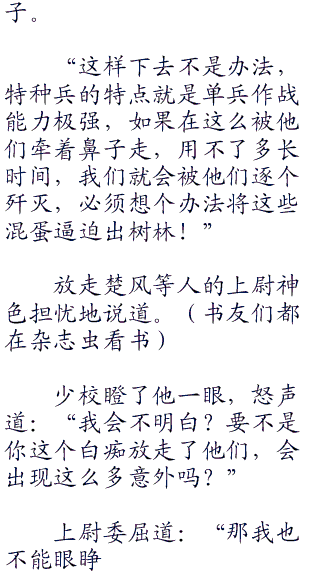 子。
“这样下去不是办法，
特种兵的特点就是单兵作战
能力极强，如果在这么被他
们牵着鼻子走，用不了多长
时间，我们就会被他们逐个
歼灭，必须想个办法将这些
混蛋逼迫出树林！”
放走楚风等人的上尉神
色担忧地说道。（书友们都
在杂志虫看书）
少校瞪了他一眼，怒声
道：“我会不明白？要不是
你这个白痴放走了他们，会
出现这么多意外吗？”
上尉委屈道：“那我也
不能眼睁